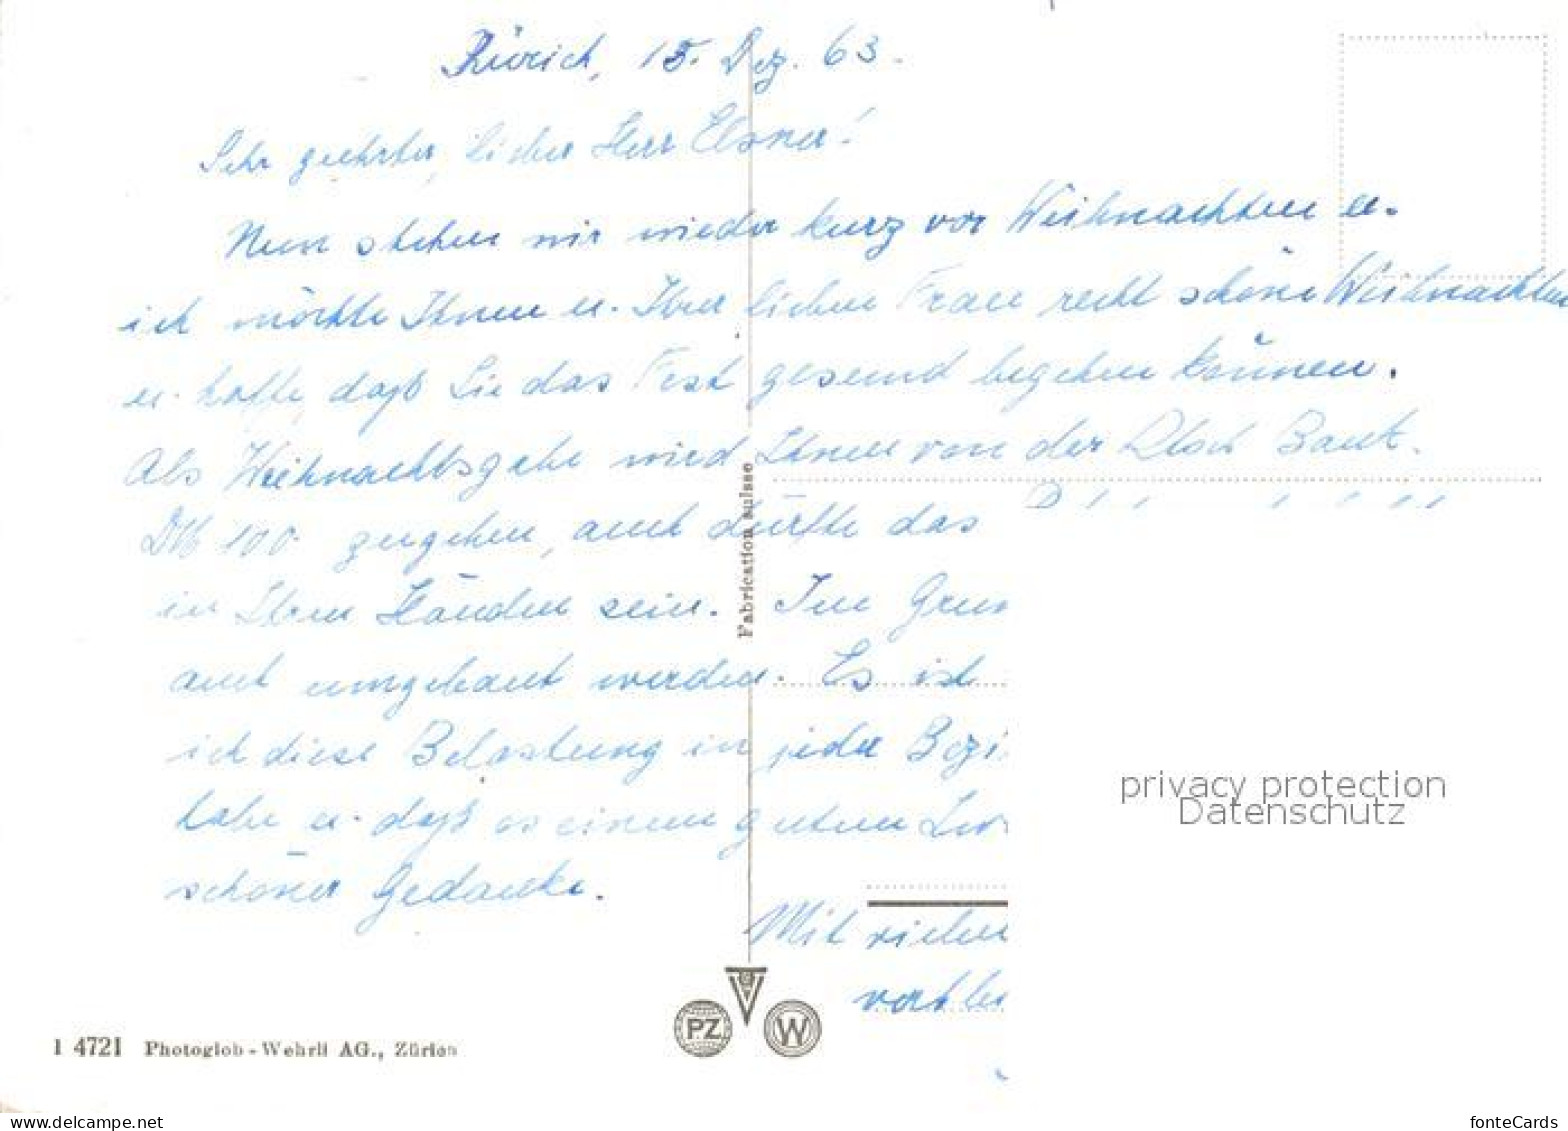 Zürich, 15. Dez. 63.
Sehr geehrter, lieber Herr Elsner!
Nun stehen wir wieder kurz vor Weihnachten u.
ich möchte Ihnen u. Ihrer lieben Frau recht schöne Weihnachten
u. hoffe, daß Sie das Fest gesund begehen können.
Als Weihnachtsgabe wird Ihnen von der Dtsch Bank.
DM 100 zugehen, auch dürfte das
in Ihren Händen sein. Im Grun
auch umgebaut werden. Es ist
ich diese Belastung in jeder Bezi
habe u. daß es einem guten
schöner Gedanke.
Mit vielen
verbl
Fabrication suisse
privacy protection
Datenschutz
PZ
W
1 4721 Photoglob-Wehrli AG., Zürich
www.delcampe.net
fonteCards